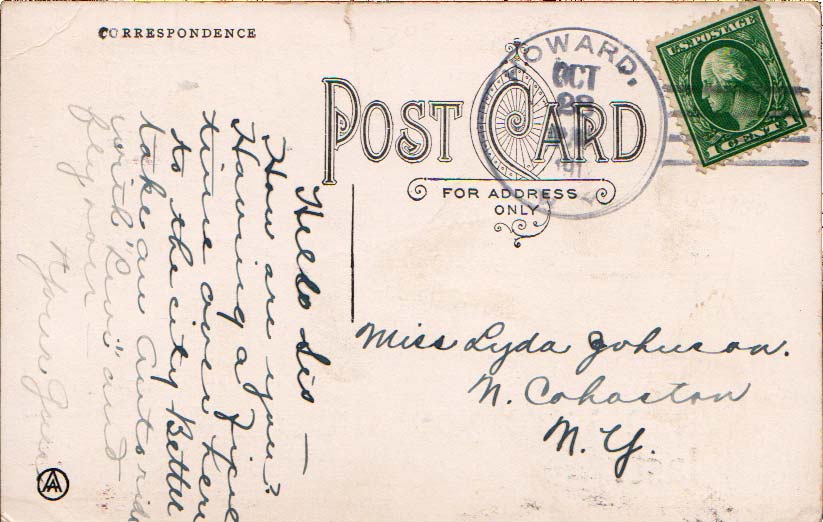 CORRESPONDENCE
POST CARD
FOR ADDRESS
ONLY
HOWARD,
OCT
28
U.S. POSTAGE
1 CENT 1
Hello Sis —
How are you?
Having a fine
time over here
to the city Better
take an auto ride
with "Levi" and
fly over
Yours
Miss Lyda Johnson.
N. Cohocton
N. Y.
AA